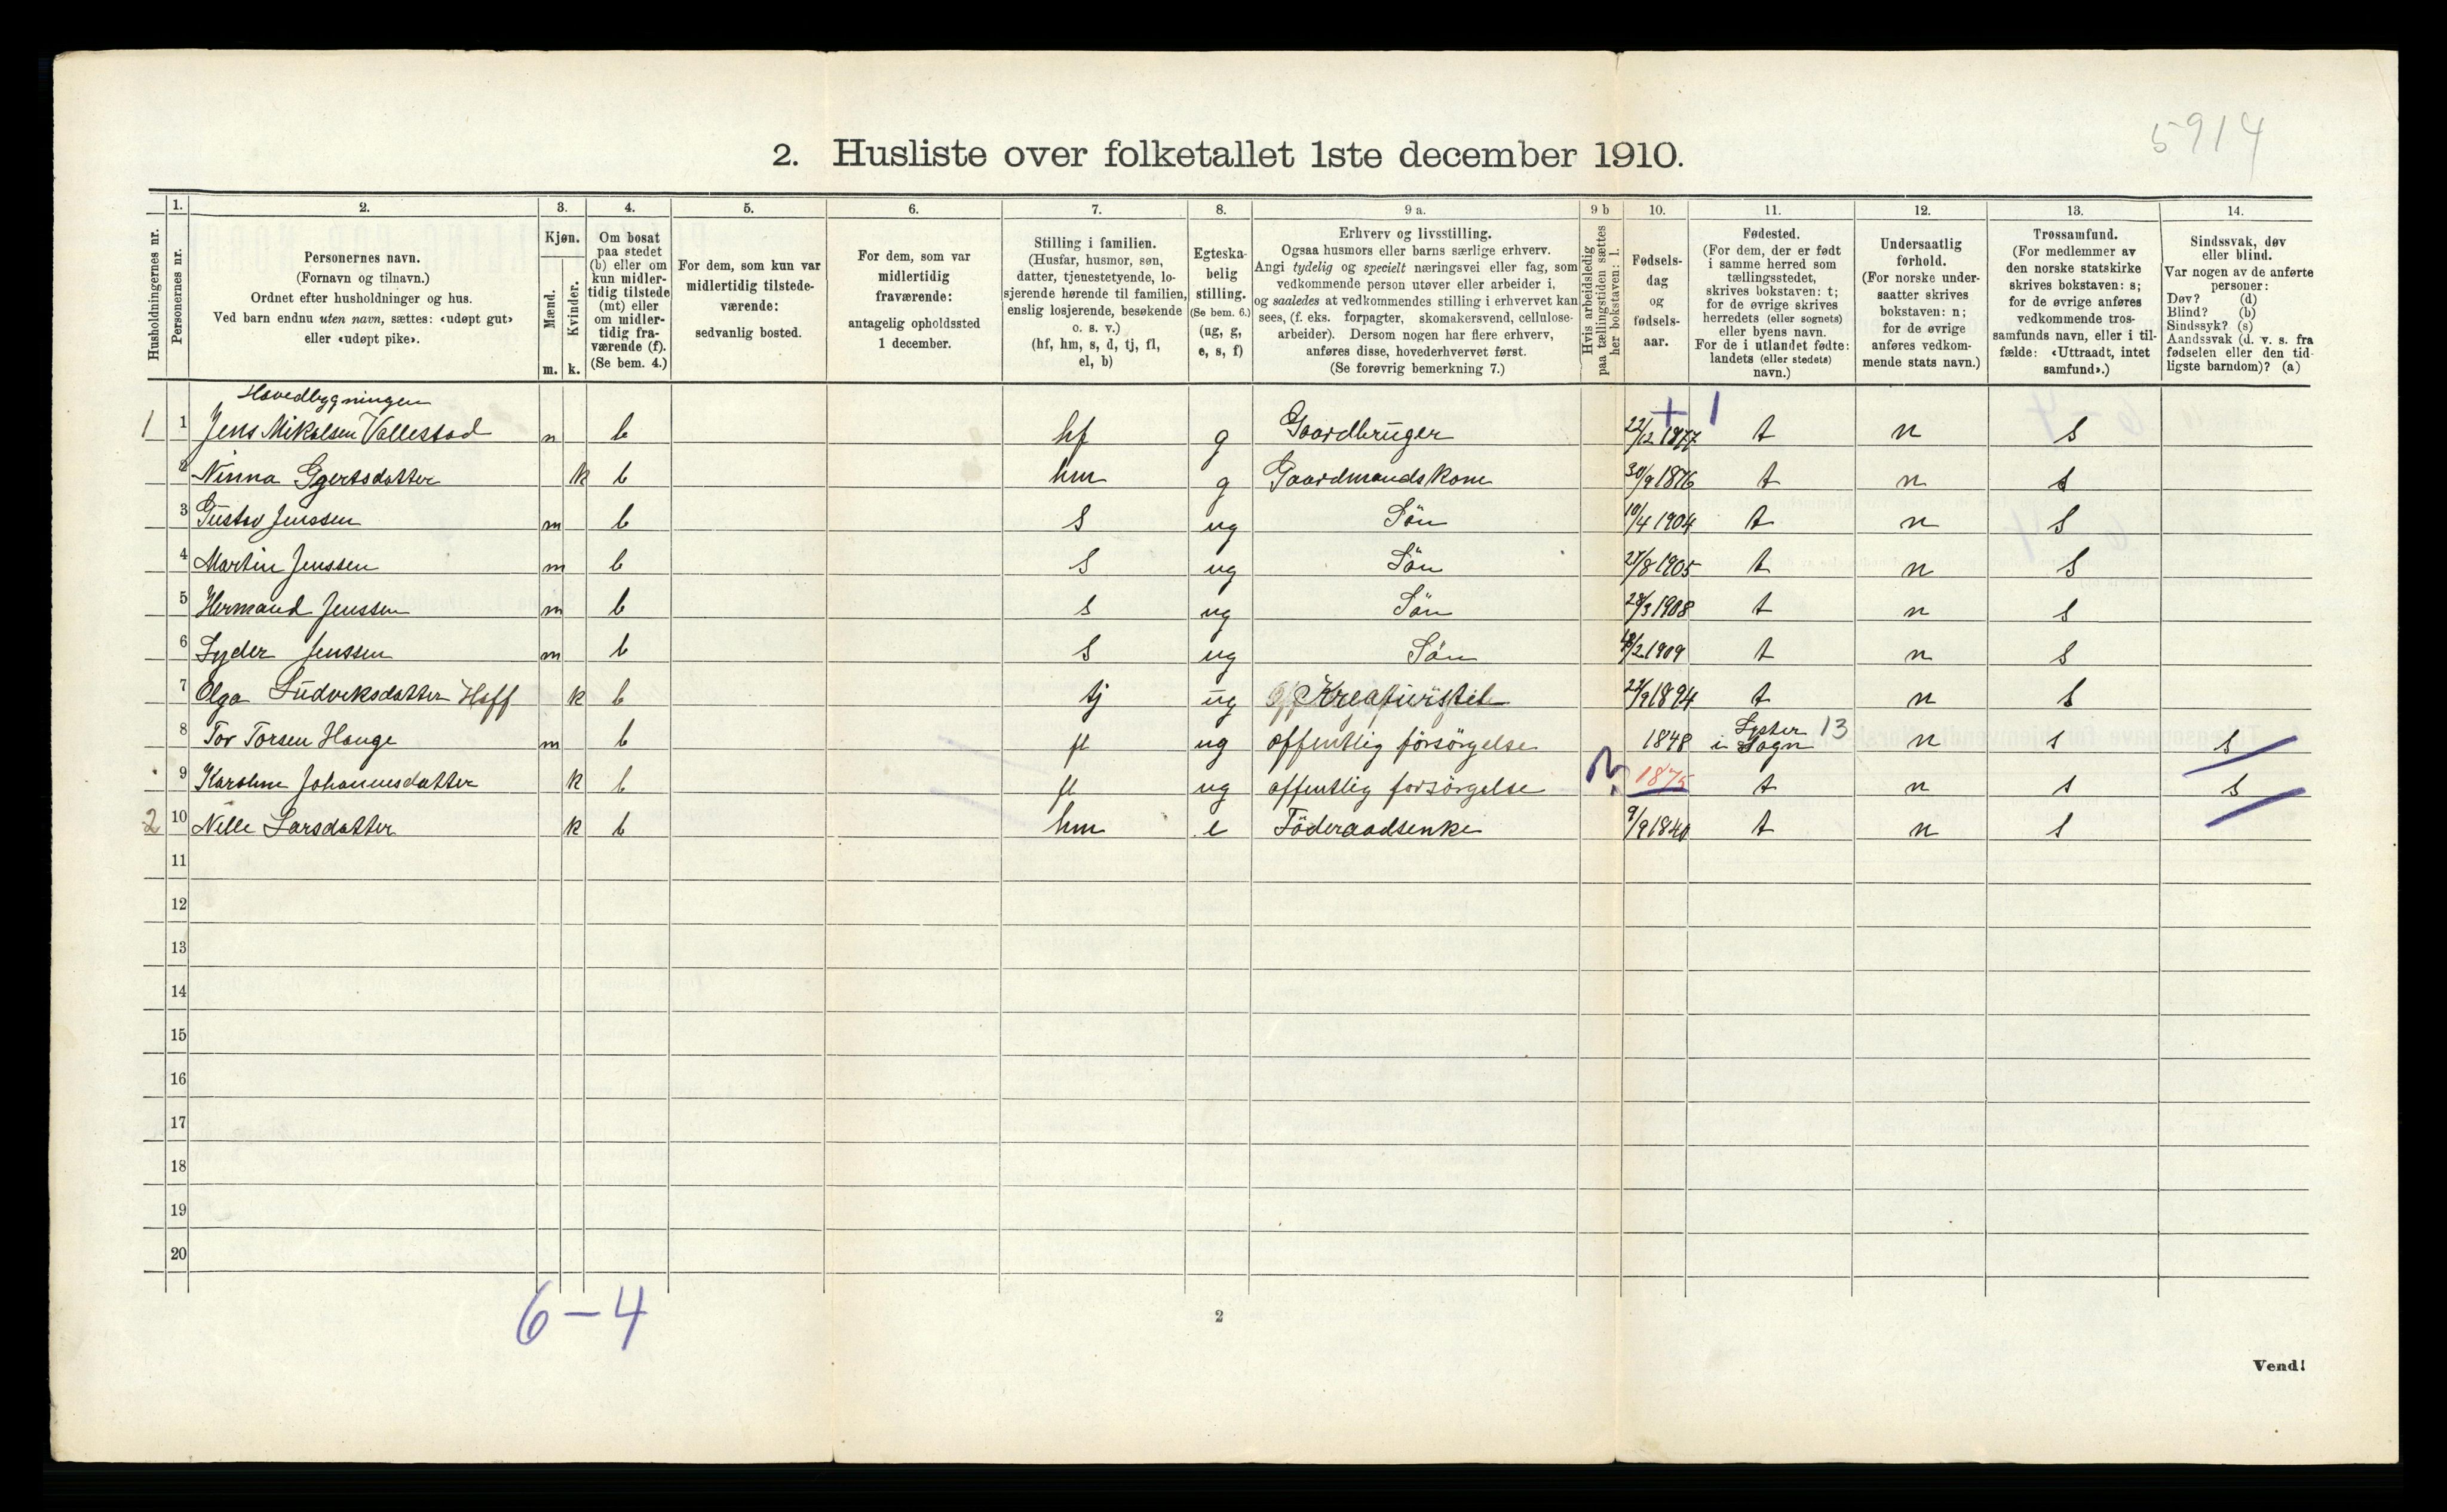 5914
2. Husliste over folketallet 1ste december 1910.
Husholdningernes nr.
1.
Personernes nr.
2.
Personernes navn.
(Fornavn og tilnavn.)
Ordnet efter husholdninger og hus.
Ved barn endnu uten navn, sættes: «udøpt gut»
eller «udøpt pike».
3.
Kjøn.
Mænd.
Kvinder.
m. k.
4.
Om bosat
paa stedet
(b) eller om
kun midler-
tidig tilstede
(mt) eller
om midler-
tidig fra-
værende (f).
(Se bem. 4.)
5.
For dem, som kun var
midlertidig tilstede-
værende:
sedvanlig bosted.
6.
For dem, som var
midlertidig
fraværende:
antagelig opholdssted
1 december.
7.
Stilling i familien.
(Husfar, husmor, søn,
datter, tjenestetyende, lo-
sjerende hørende til familien,
enslig losjerende, besøkende
o. s. v.)
(hf, hm, s, d, tj, fl,
el, b)
8.
Egteska-
belig
stilling.
(Se bem. 6.)
(ug, g,
e, s, f)
9 a.
Erhverv og livsstilling.
Ogsaa husmors eller barns særlige erhverv.
Angi tydelig og specielt næringsvei eller fag, som
vedkommende person utøver eller arbeider i,
og saaledes at vedkommendes stilling i erhvervet kan
sees, (f. eks. forpagter, skomakersvend, cellulose-
arbeider). Dersom nogen har flere erhverv,
anføres disse, hovederhvervet først.
(Se forøvrig bemerkning 7.)
9 b
Hvis arbeidsledig
paa tællingstiden sættes
her bokstaven: l.
10.
Fødsels-
dag
og
fødsels-
aar.
11.
Fødested.
(For dem, der er født
i samme herred som
tællingsstedet,
skrives bokstaven: t;
for de øvrige skrives
herredets (eller sognets)
eller byens navn.
For de i utlandet fødte:
landets (eller stedets)
navn.)
12.
Undersaatlig
forhold.
(For norske under-
saatter skrives
bokstaven: n;
for de øvrige
anføres vedkom-
mende stats navn.)
13.
Trossamfund.
(For medlemmer av
den norske statskirke
skrives bokstaven: s;
for de øvrige anføres
vedkommende tros-
samfunds navn, eller i til-
fælde: «Uttraadt, intet
samfund».)
14.
Sindssvak, døv
eller blind.
Var nogen av de anførte
personer:
Døv? (d)
Blind? (b)
Sindssyk? (s)
Aandssvak (d. v. s. fra
fødselen eller den tid-
ligste barndom)? (a)
Hovedbygningen + 1
1 1 Jens Mikalsen Vallestad m b hf g Gaardbruger 22/12 1877 t n s
2 Ninna Gjertsdatter k b hm g Gaardmandskone 30/9 1876 t n s
3 Gustav Jenssen m b s ug Sön 10/4 1904 t n s
4 Martin Jenssen m b s ug Sön /8 1905 t n s
5 Hermand Jenssen m b s ug Sön 28/3 1908 t n s
6 Lyder Jenssen m b s ug Sön 18/2 1909 t n s
7 Olga Ludviksdatter Hoff k b tj ug Kreaturstel /9 1894 t n s
8 Tor Torsen Hauge m b fl ug offentlig försörgelse 1848 Lyster i Sogn 13 n s s
9 Karoline Johannesdatter k b fl ug offentlig forsörgelse ? 1875 t n s s
2 10 Nille Larsdatter k b hm e Föderaadsenke 9/9 1840 t n s
11
12
13
14
15
16
17
18
19
20
6 - 4
2
Vend!